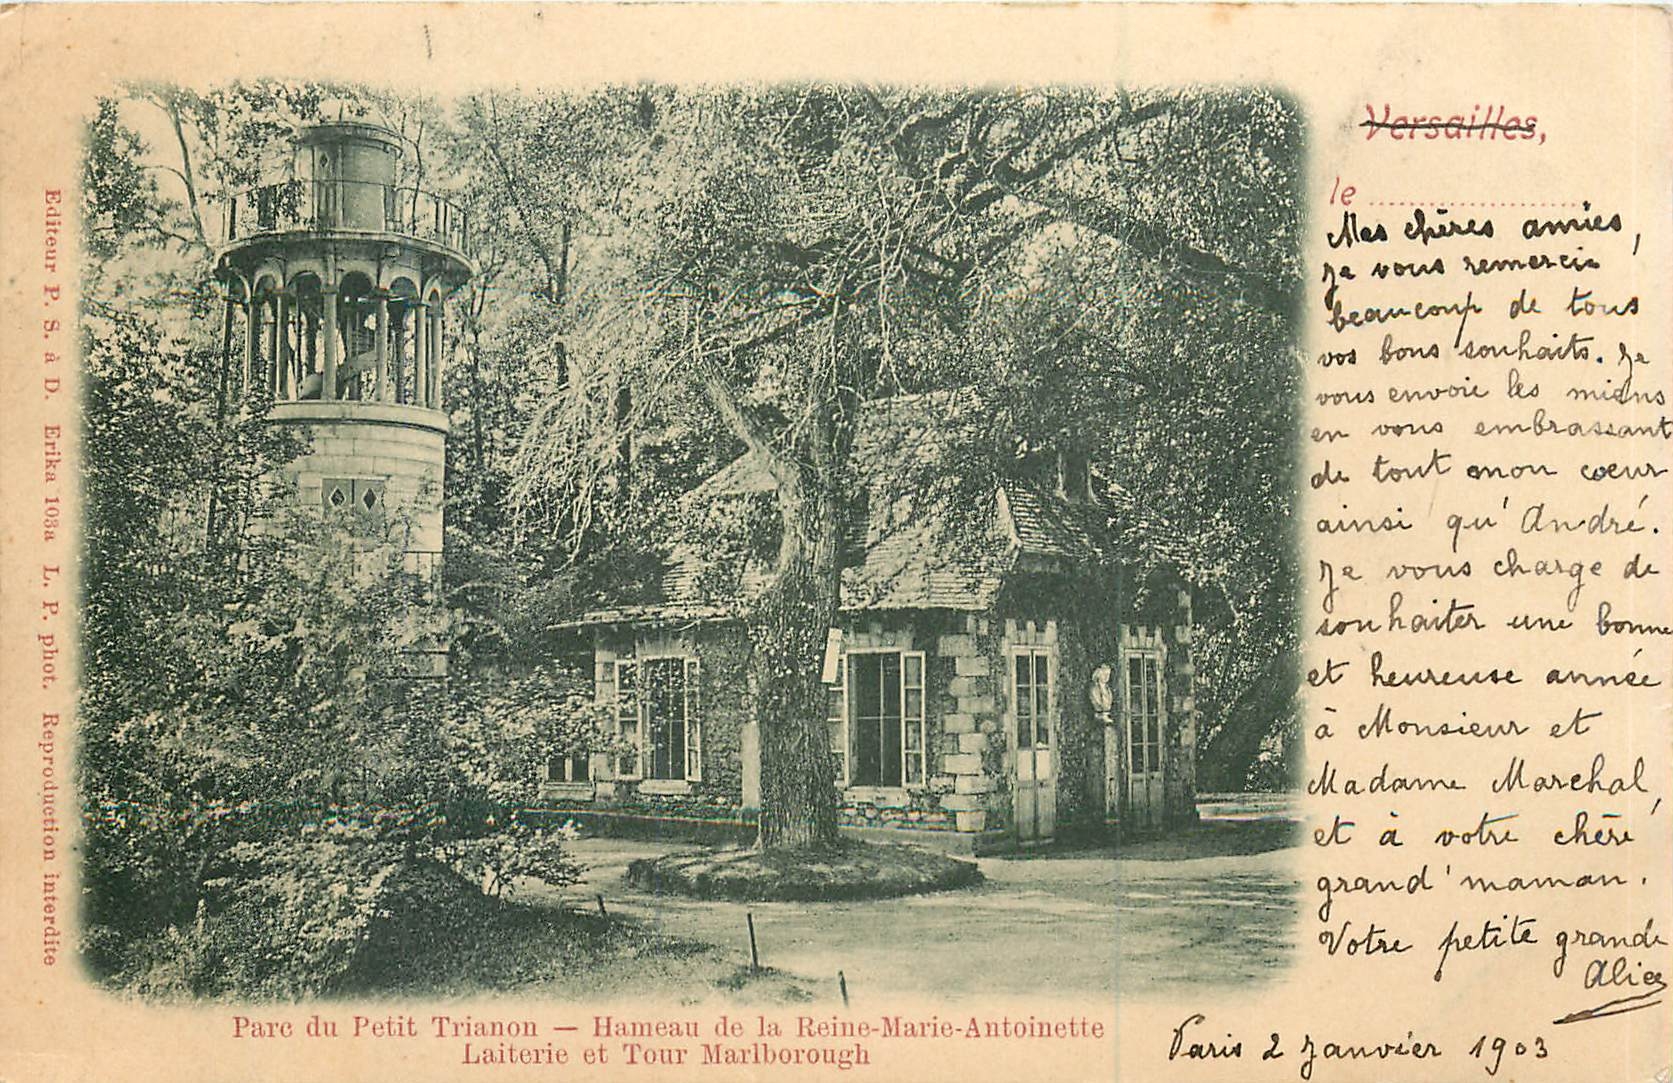 Versailles,
le
Mes chères amies,
Je vous remercie
beaucoup de tous
vos bons souhaits. Je
vous envoie les miens
en vous embrassant
de tout mon cœur
ainsi qu'André.
Je vous charge de
souhaiter une bonne
et heureuse année
à Monsieur et
Madame Marchal,
et à votre chère
grand'maman.
Votre petite grande
Alice
Paris 2 Janvier 1903
Parc du Petit Trianon — Hameau de la Reine-Marie-Antoinette
Laiterie et Tour Marlborough
Editeur P. S. à D. Erika 103a L. P. phot. Reproduction interdite